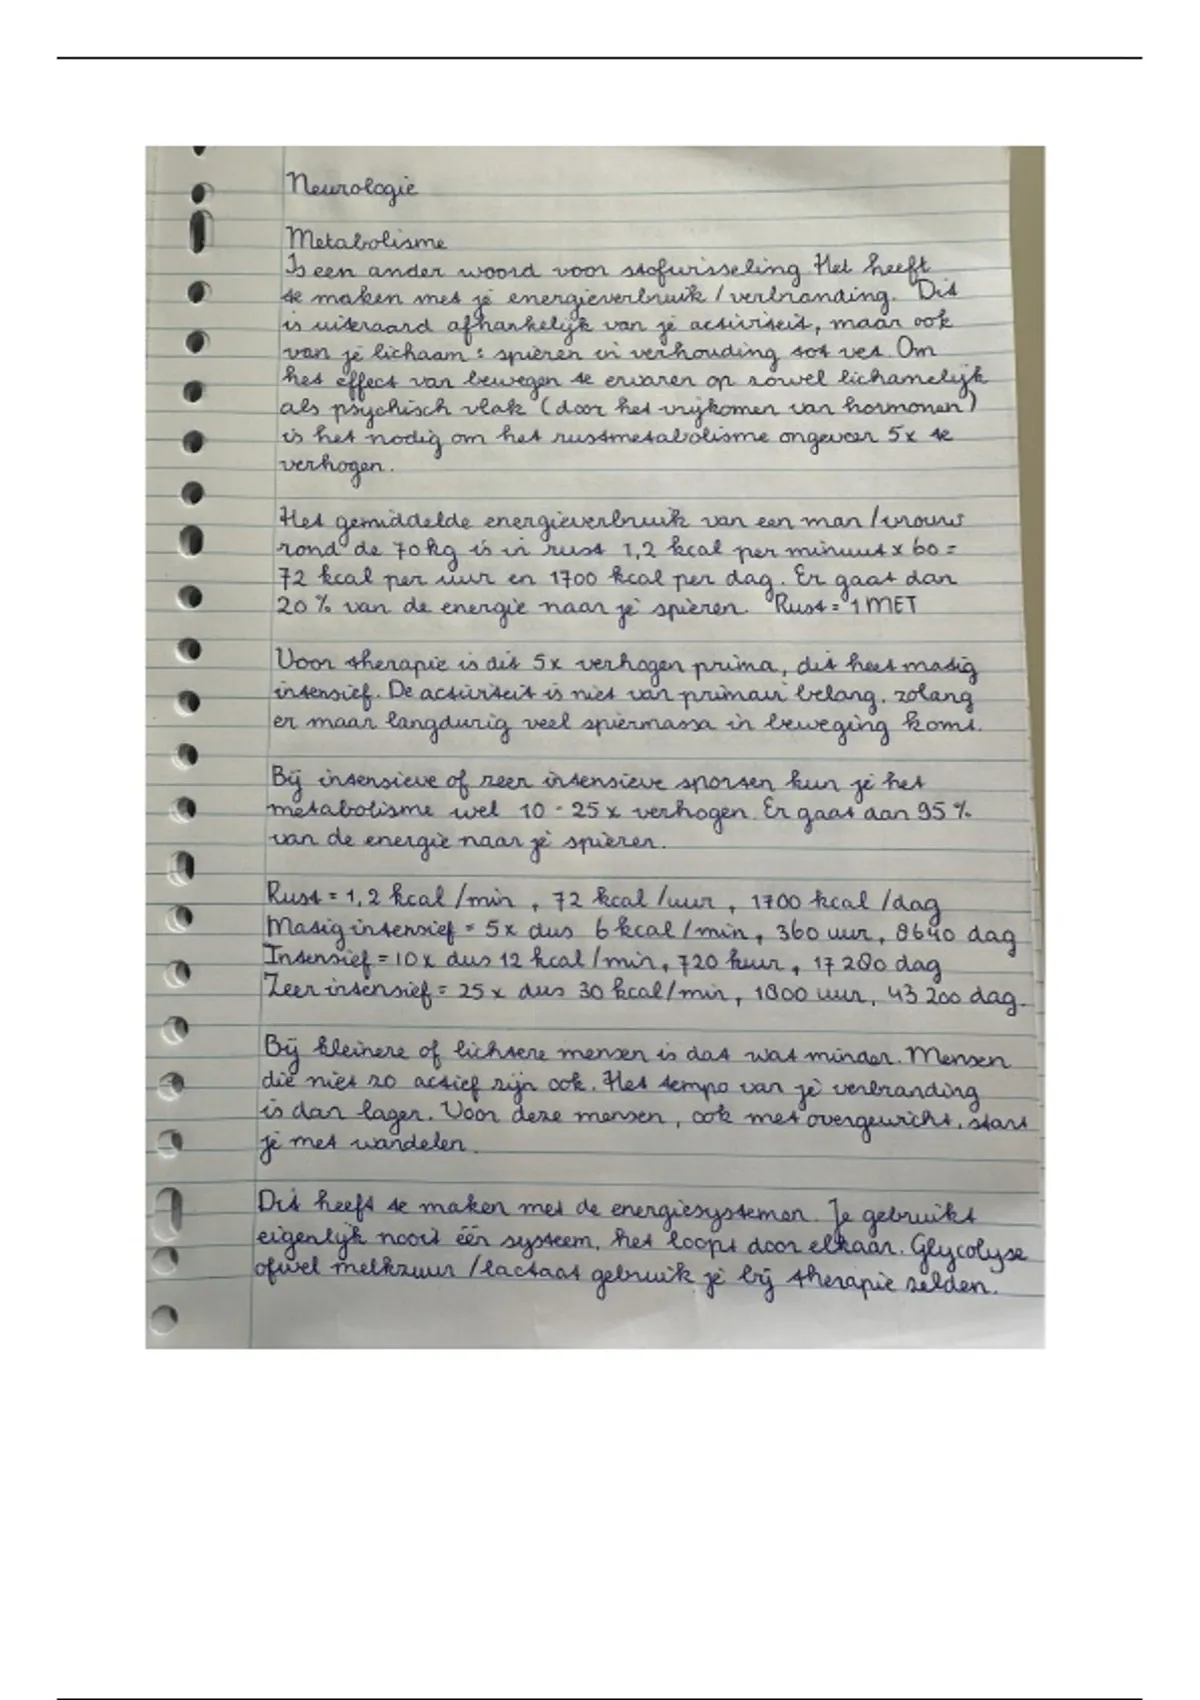 Neurologie
Metabolisme
Is een ander woord voor stofwisseling. Het heeft
te maken met je energieverbruik / verbranding. Dit
is uiteraard afhankelijk van je activiteit, maar ook
van je lichaam : spieren in verhouding tot vet. Om
het effect van bewegen te ervaren op zowel lichamelijk
als psychisch vlak (door het vrijkomen van hormonen)
is het nodig om het rustmetabolisme ongeveer 5x te
verhogen.
Het gemiddelde energieverbruik van een man / vrouw
rond de 70kg is in rust 1,2 kcal per minuut x 60 =
72 kcal per uur en 1700 kcal per dag. Er gaat dan
20 % van de energie naar je spieren. Rust = 1 MET
Voor therapie is dit 5x verhogen prima, dit heet matig
intensief. De activiteit is niet van primair belang, zolang
er maar langdurig veel spiermassa in beweging komt.
Bij intensieve of zeer intensieve sporten kun je het
metabolisme wel 10 - 25 x verhogen. Er gaat dan 95 %
van de energie naar je spieren.
Rust = 1,2 kcal / min , 72 kcal / uur , 1700 kcal / dag
Matig intensief = 5x dus 6 kcal / min, 360 uur, 8640 dag
Intensief = 10x dus 12 kcal / min, 720 kuur, 17 280 dag
Zeer intensief = 25x dus 30 kcal / min, 1800 uur, 43 200 dag.
Bij kleinere of lichtere mensen is dat wat minder. Mensen
die niet zo actief zijn ook. Het tempo van je verbranding
is dan lager. Voor deze mensen, ook met overgewicht, start
je met wandelen.
Dit heeft te maken met de energiesystemen. Je gebruikt
eigenlijk nooit één systeem, het loopt door elkaar. Glycolyse
ofwel melkzuur / lactaat gebruik je bij therapie zelden.